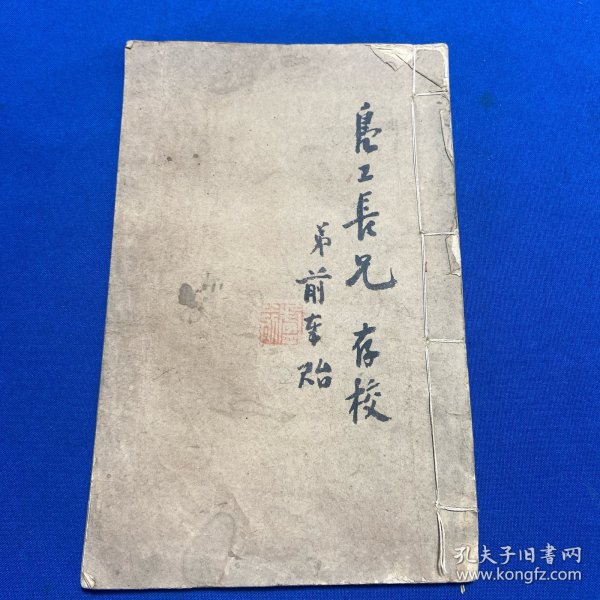 亮工長兄 存校
弟前奉貽
孔夫子旧書网
www.kongfz.com